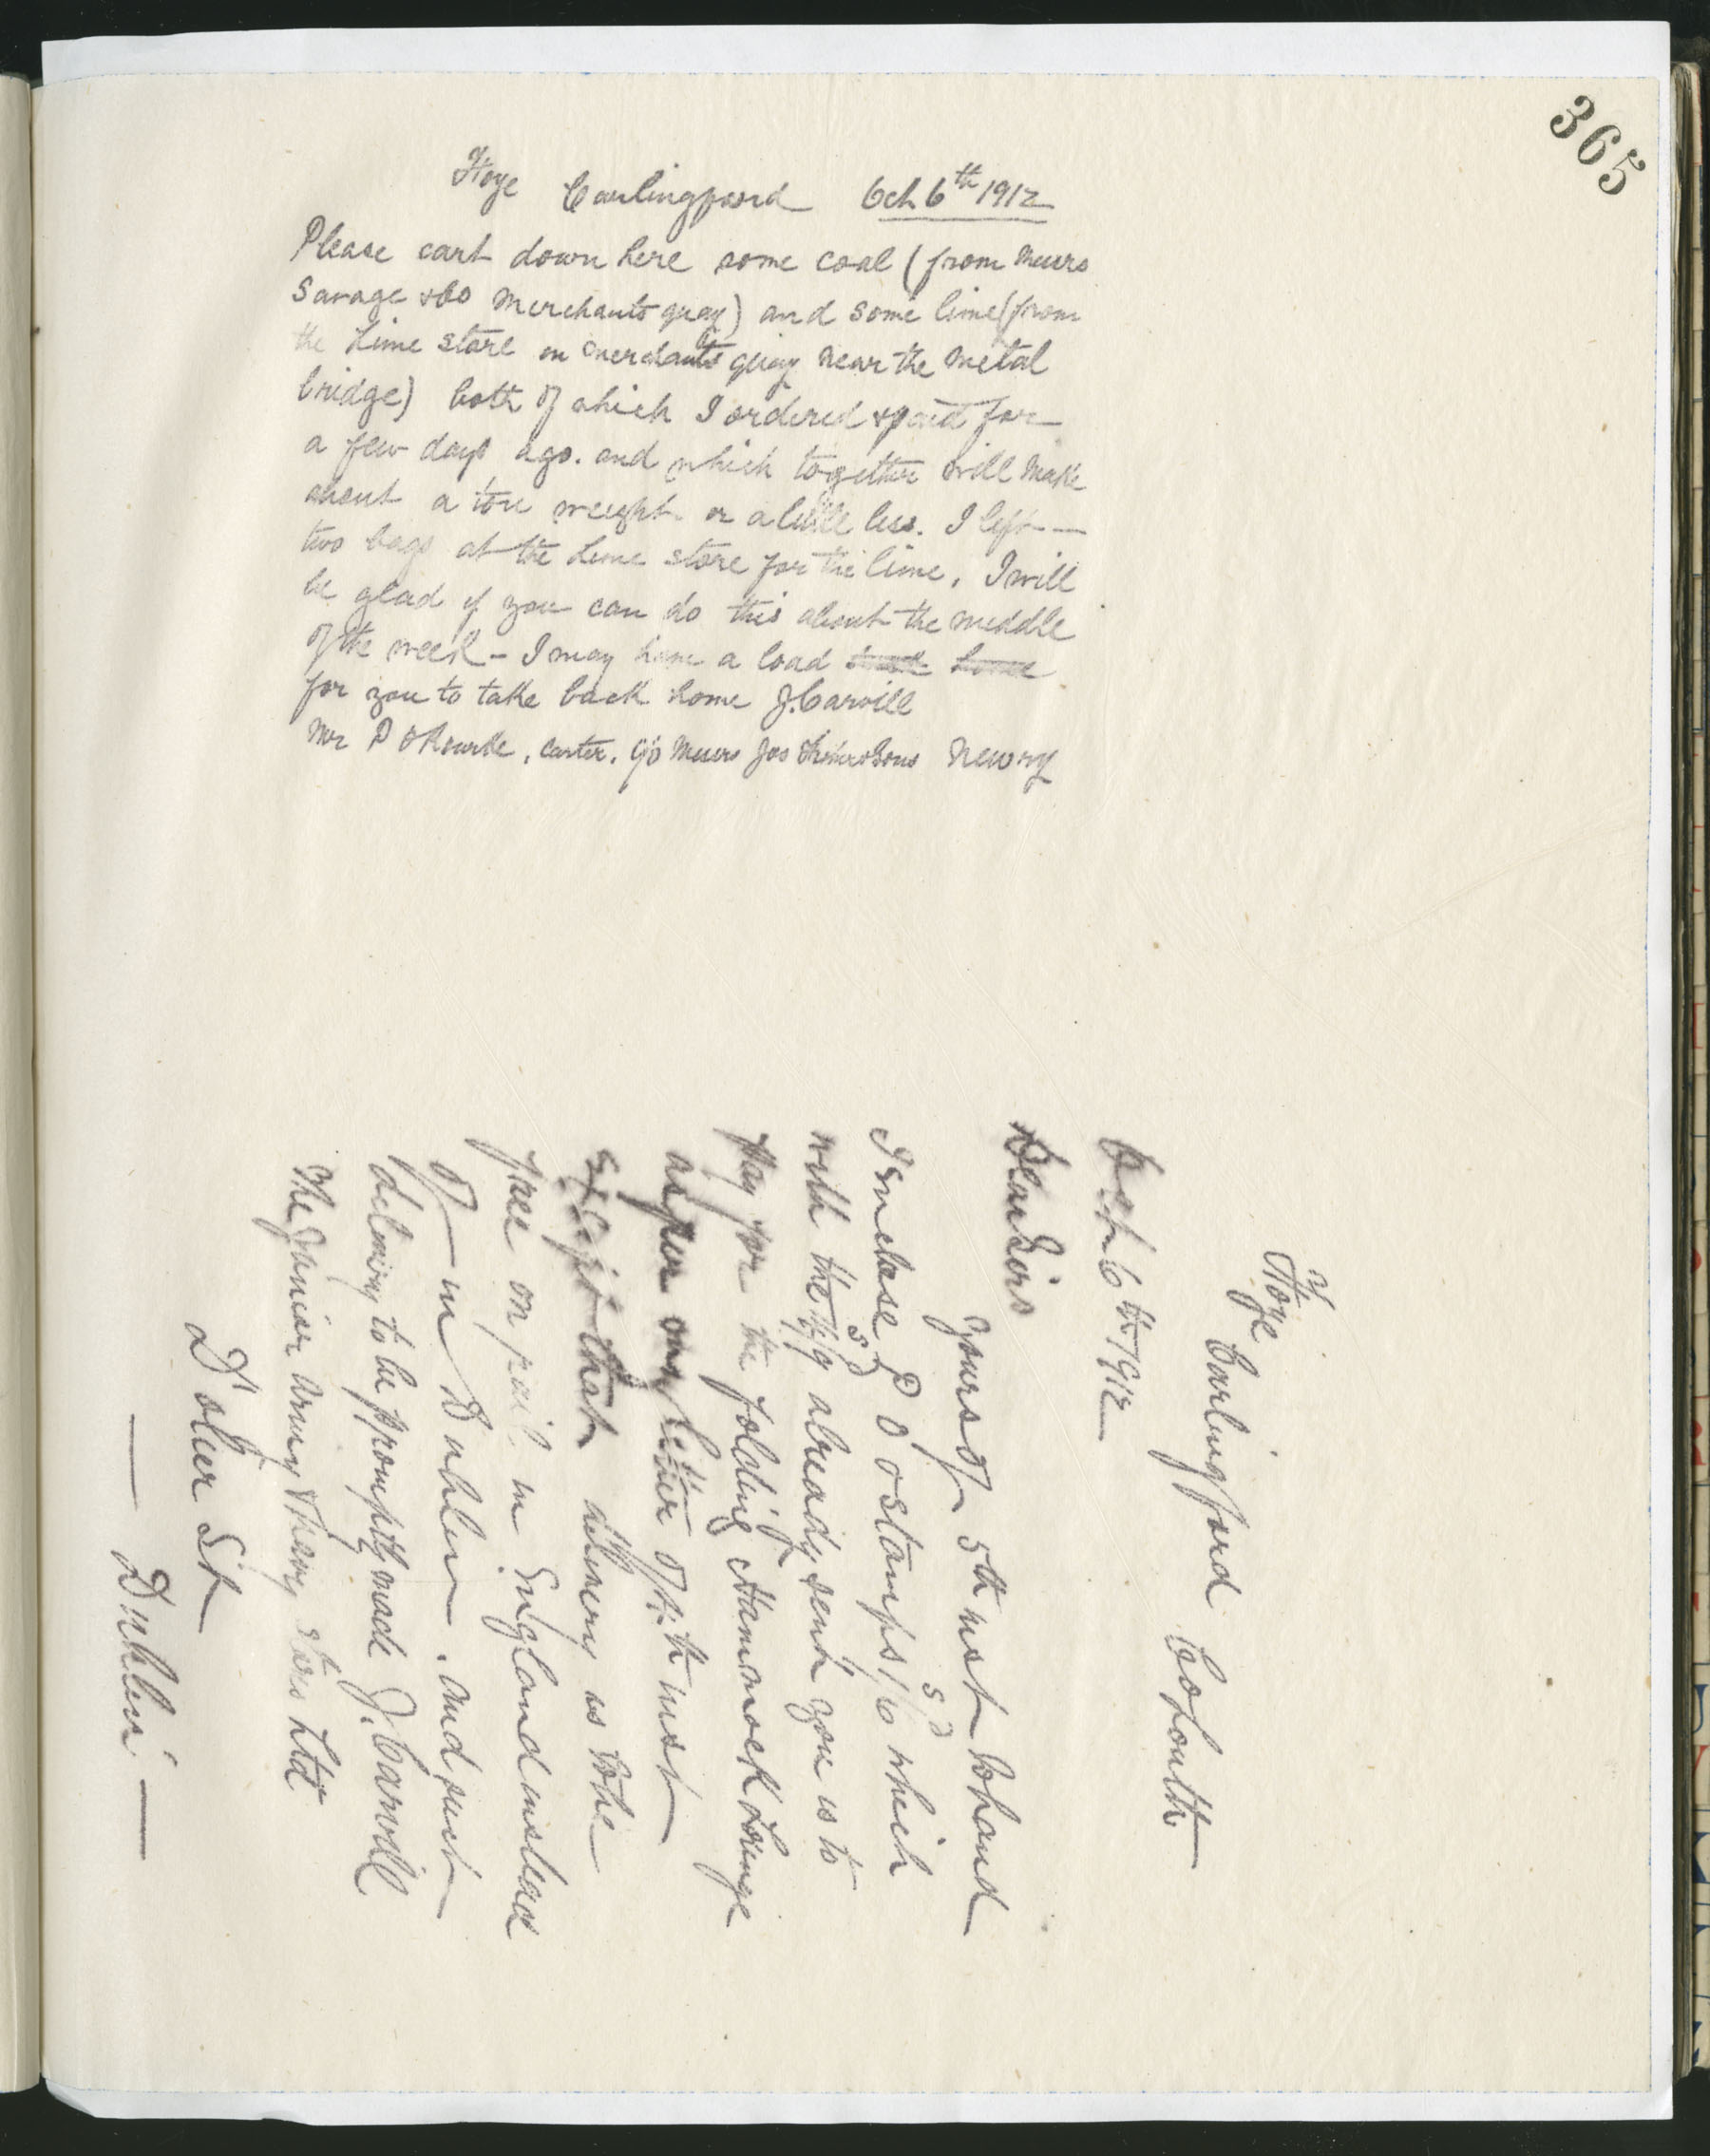 365
Hoye Carlingford Oct 6th 1912
Please cart down here some coal (from Messrs
Savage & Co Merchants quay) and some lime (from
the Lime store on Merchants quay near the metal
bridge) both of which I ordered & paid for
a few days ago. and which together will make
about a ton weight or a little less. I left —
two bags at the Lime store for the lime. I will
be glad if you can do this about the middle
of the week - I may have a load
for you to take back home J. Carvill
Mr P O Rourke, Carter, c/o Messrs Jos Fisher & Sons Newry
Hoye
Carlingford Co Louth
Oct 6th 1912
Dear Sirs
Yours of 5th inst to hand
I enclose P O O stamps 1/6 which
with the already sent you is to
pay for the folding Hammock Lounge
as per my letter of inst
except that delivery is to be
free on rail in England instead
of — in Dublin. and such
delivery to be promptly made J. Carvill
The Junior Army & Navy Stores Ltd
D'olier St
— Dublin —